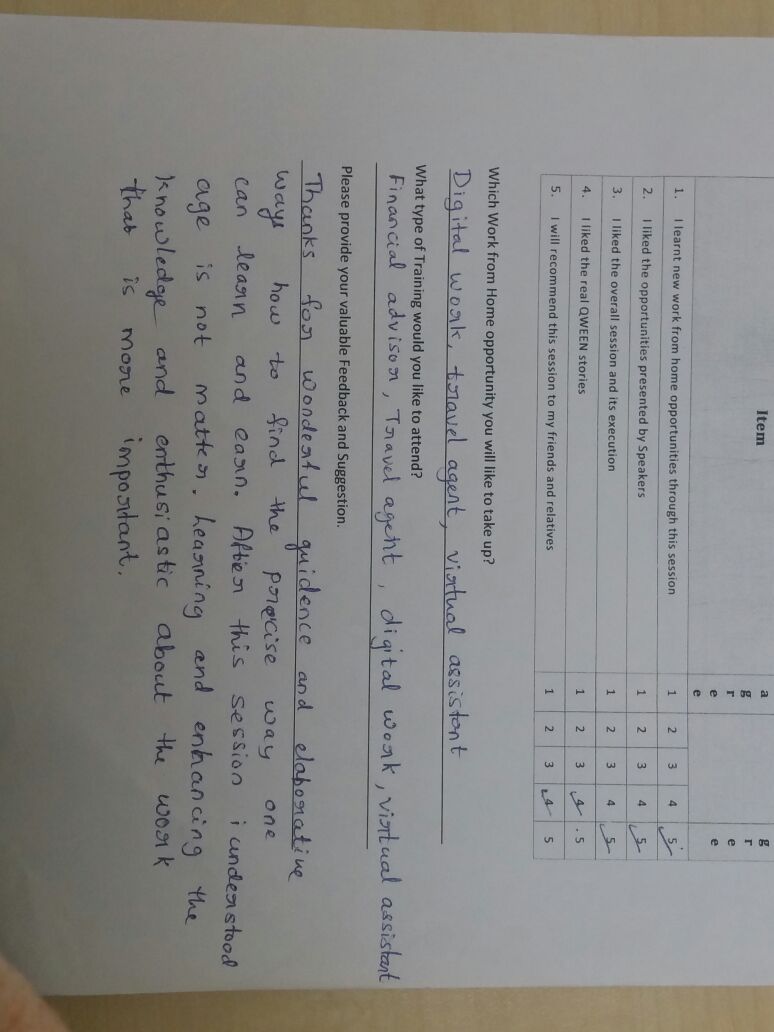 Item
a
g
r
e
e
g
r
e
e
1. I learnt new work from home opportunities through this session 1 2 3 4 5
2. I liked the opportunities presented by Speakers 1 2 3 4 5
3. I liked the overall session and its execution 1 2 3 4 5
4. I liked the real QWEEN stories 1 2 3 4 5
5. I will recommend this session to my friends and relatives 1 2 3 4 5
Which Work from Home opportunity you will like to take up?
Digital work, travel agent, virtual assistant
What type of Training would you like to attend?
Financial advisor, Travel agent, digital work, virtual assistant
Please provide your valuable Feedback and Suggestion.
Thanks for wonderful guidence and elaborative
ways how to find the precise way one
can learn and earn. After this session i understood
age is not matter. Learning and enhancing the
knowledge and enthusiastic about the work
that is more important.